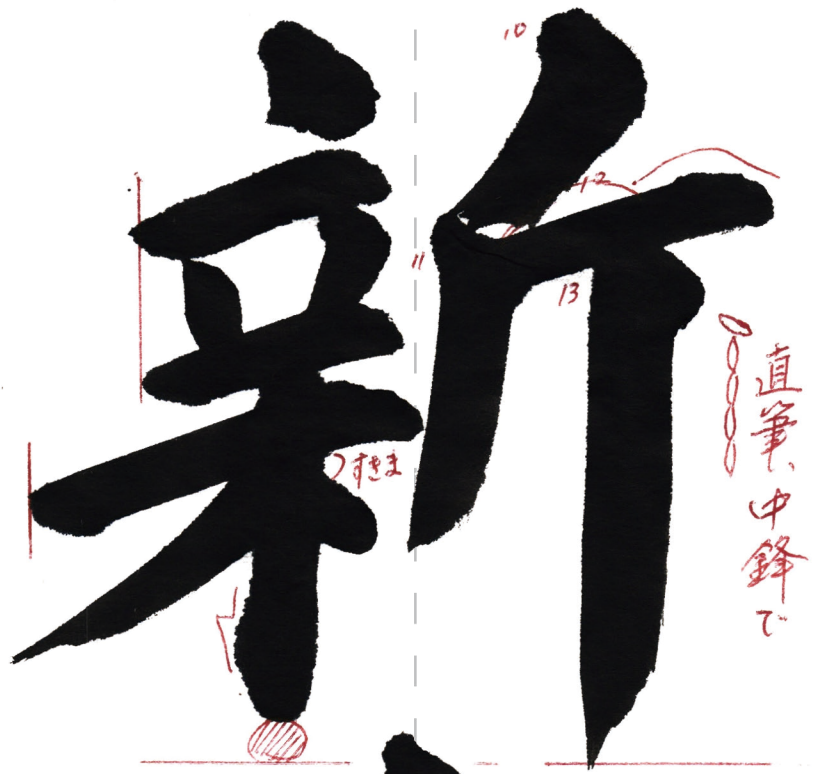 新
10
11
12
13
すきま
直筆、中鋒で